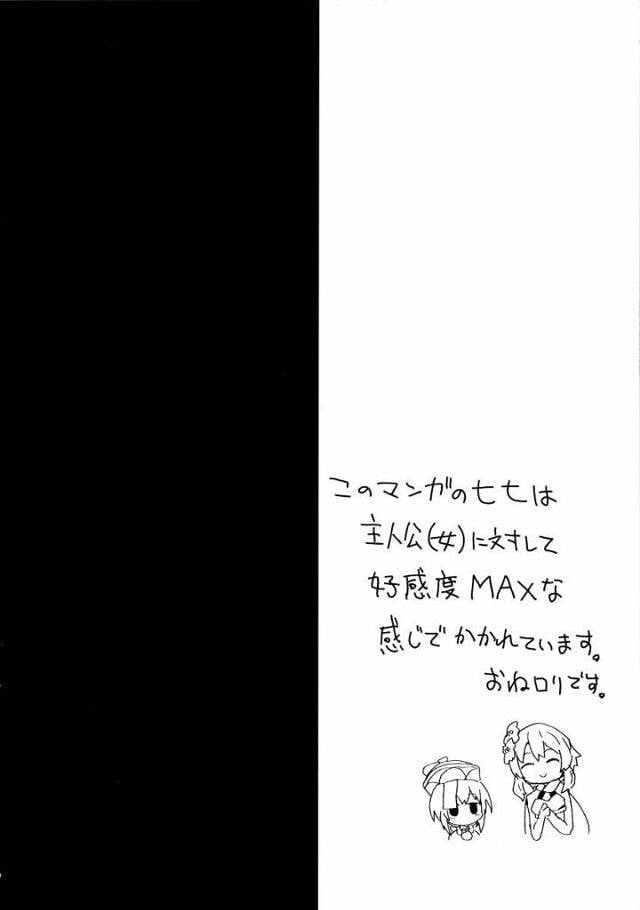 このマンガの七七は
主人公(女)に対して
好感度MAXな
感じでかかれています。
おねロリです。